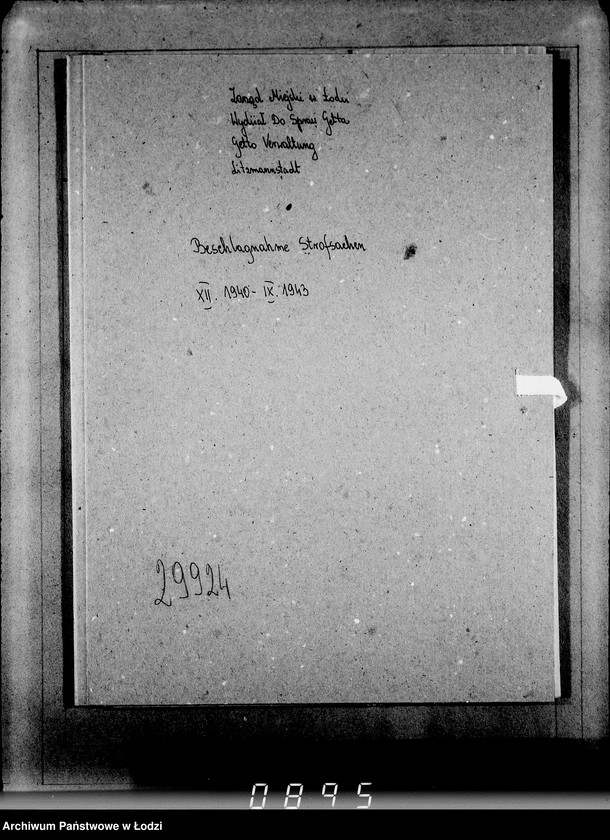 Zarząd Miejski w Łodzi
Wydział Do Spraw Getta
Getto Verwaltung
Litzmannstadt
Beschlagnahme Strafsachen
XII. 1940 - IX. 1943
29924
0895
Archiwum Państwowe w Łodzi